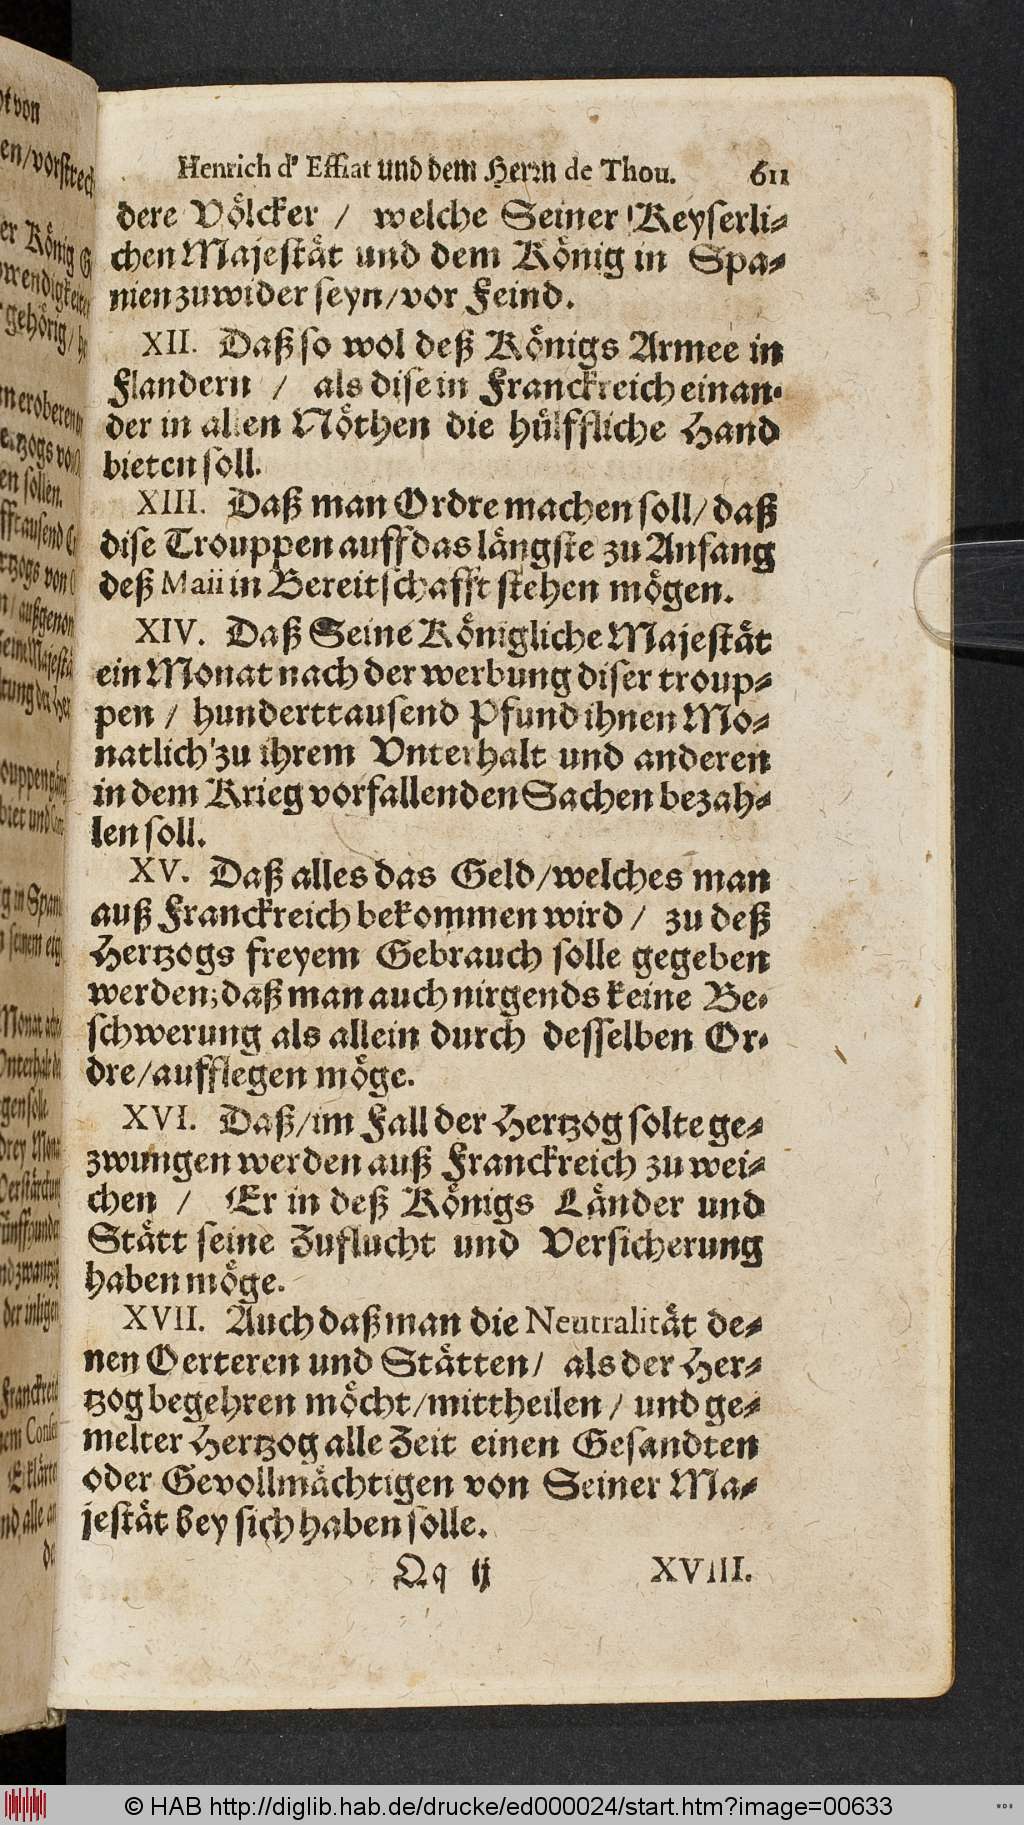 Henrich d' Effiat und dem Herrn de Thou. 611
dere Völcker / welche Seiner Keyserli-
chen Majestät und dem König in Spa-
nien zuwider seyn/vor Feind.
XII. Daß so wol deß Königs Armee in
Flandern / als dise in Franckreich einan-
der in allen Nöthen die hülffliche Hand
bieten soll.
XIII. Daß man Ordre machen soll/ daß
dise Trouppen auff das längste zu Anfang
deß Maii in Bereitschafft stehen mögen.
XIV. Daß Seine Königliche Majestät
ein Monat nach der werbung diser troup-
pen / hunderttausend Pfund ihnen Mo-
natlich zu ihrem Vnterhalt und anderen
in dem Krieg vorfallenden Sachen bezah-
len soll.
XV. Daß alles das Geld/welches man
auß Franckreich bekommen wird / zu deß
Hertzogs freyem Gebrauch solle gegeben
werden; daß man auch nirgends keine Be-
schwerung als allein durch desselben Or-
dre/aufflegen möge.
XVI. Daß/im Fall der Hertzog solte ge-
zwungen werden auß Franckreich zu wei-
chen / Er in deß Königs Länder und
Stätt seine Zuflucht und Versicherung
haben möge.
XVII. Auch daß man die Neutralität de-
nen Oerteren und Stätten/ als der Her-
tzog begehren möcht/mittheilen / und ge-
melter Hertzog alle Zeit einen Gesandten
oder Gevollmächtigen von Seiner Ma-
jestät bey sich haben solle.
Qq ij XVIII.
© HAB http://diglib.hab.de/drucke/ed000024/start.htm?image=00633